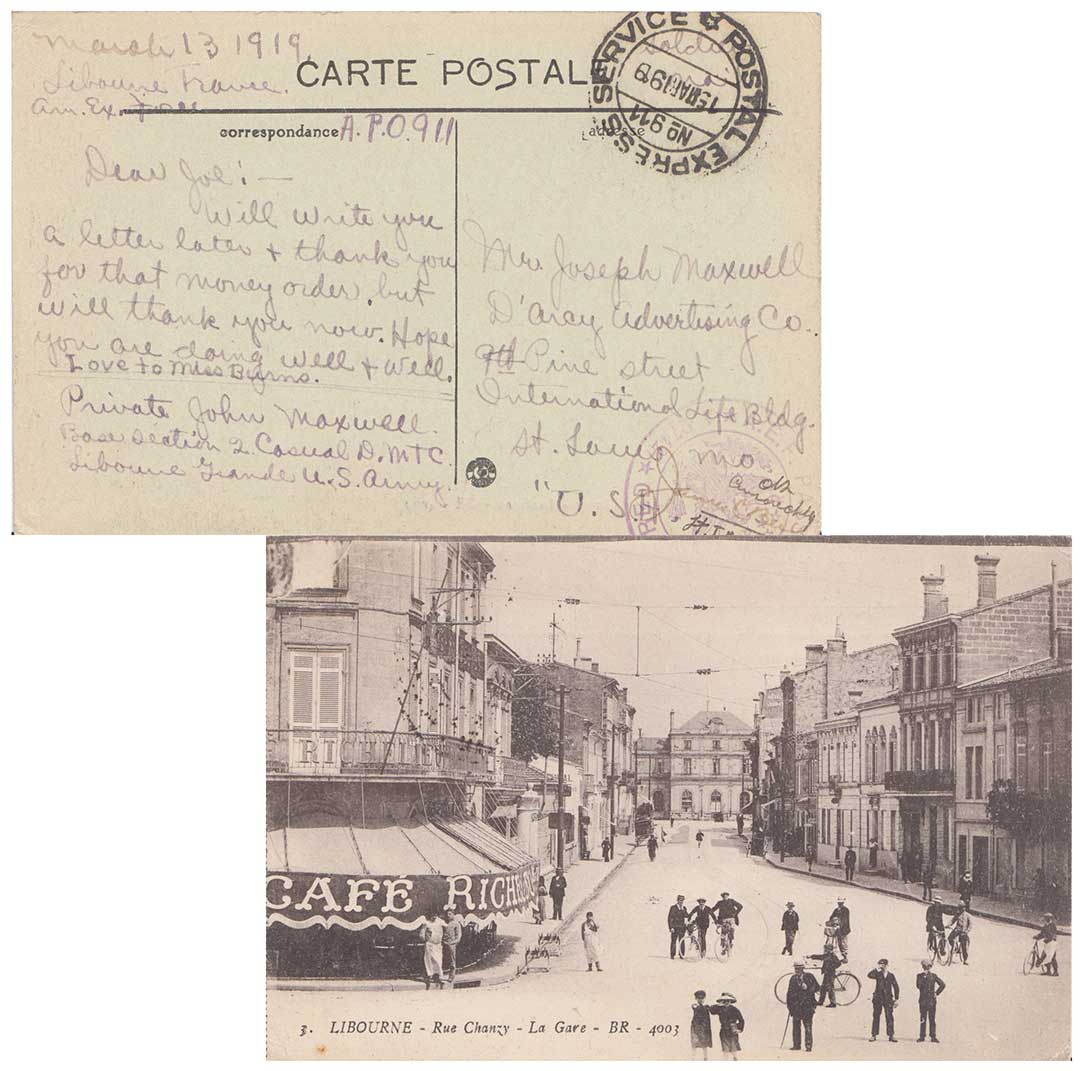 March 13 1919.
Libourne France.
Am. Ex. Force
CARTE POSTALE
Soldier
POSTAL EXPRESS SERVICE
15 MAR 1919
No 911
correspondance
A.P.O. 911
adresse
Dear Joe:—
Will write you
a letter later + thank you
for that money order, but
will thank you now. Hope
you are doing well + well.
Love to Miss Byrns.
Private John Maxwell.
Base Section 2. Casual D. MTC
Libourne Gironde U.S. Army
Mr. Joseph Maxwell
D'arcy Advertising Co.
9th Pine street
International Life Bldg.
St. Louis Mo
"U.S.A
OK
CAFÉ RICHE
RICHELIEU
3. LIBOURNE - Rue Chanzy - La Gare - BR - 4003